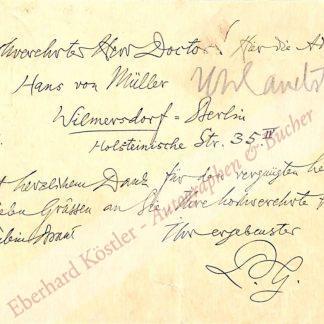 hochverehrter Herr Doctor! Für die Ad
Hans von Müller Uhlandst
Wilmersdorf = Berlin
Holsteinische Str. 35.IV
t herzlichem Dank für den vergnügten
ieben Grüssen an Sie, Ihre hochverehrte
Ihr ergebenster
P. G.
Eberhard Köstler - Autographen & Bücher